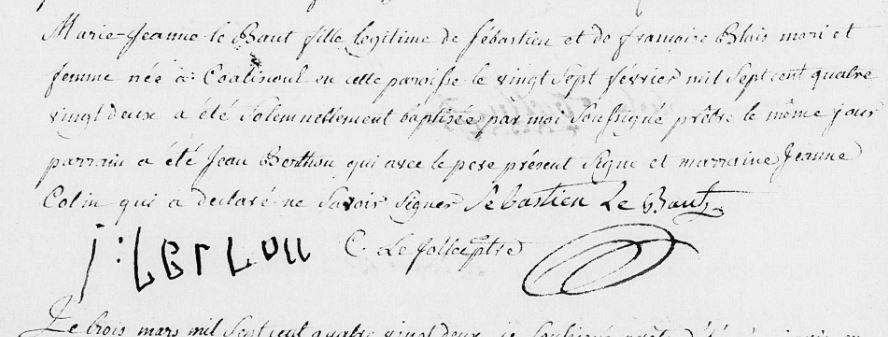 Marie-Jeanne le Baut fille légitime de Sébastien et de françoise Blais mari et
femme née à Coatiscoul en cette paroisse le vingt Sept février mil Sept cent quatre
vingt deux a été Solemnellement baptisée par moi Soussigné prêtre le même jour
parrain a été Jean Berthou qui avec le pere présent Signe et marraine Jeanne
Colin qui a declaré ne Savoir Signer Sebastien Le Baut
C. Le folle ptre
Le trois mars mil Sept cent quatre vingt deux je Soussigné